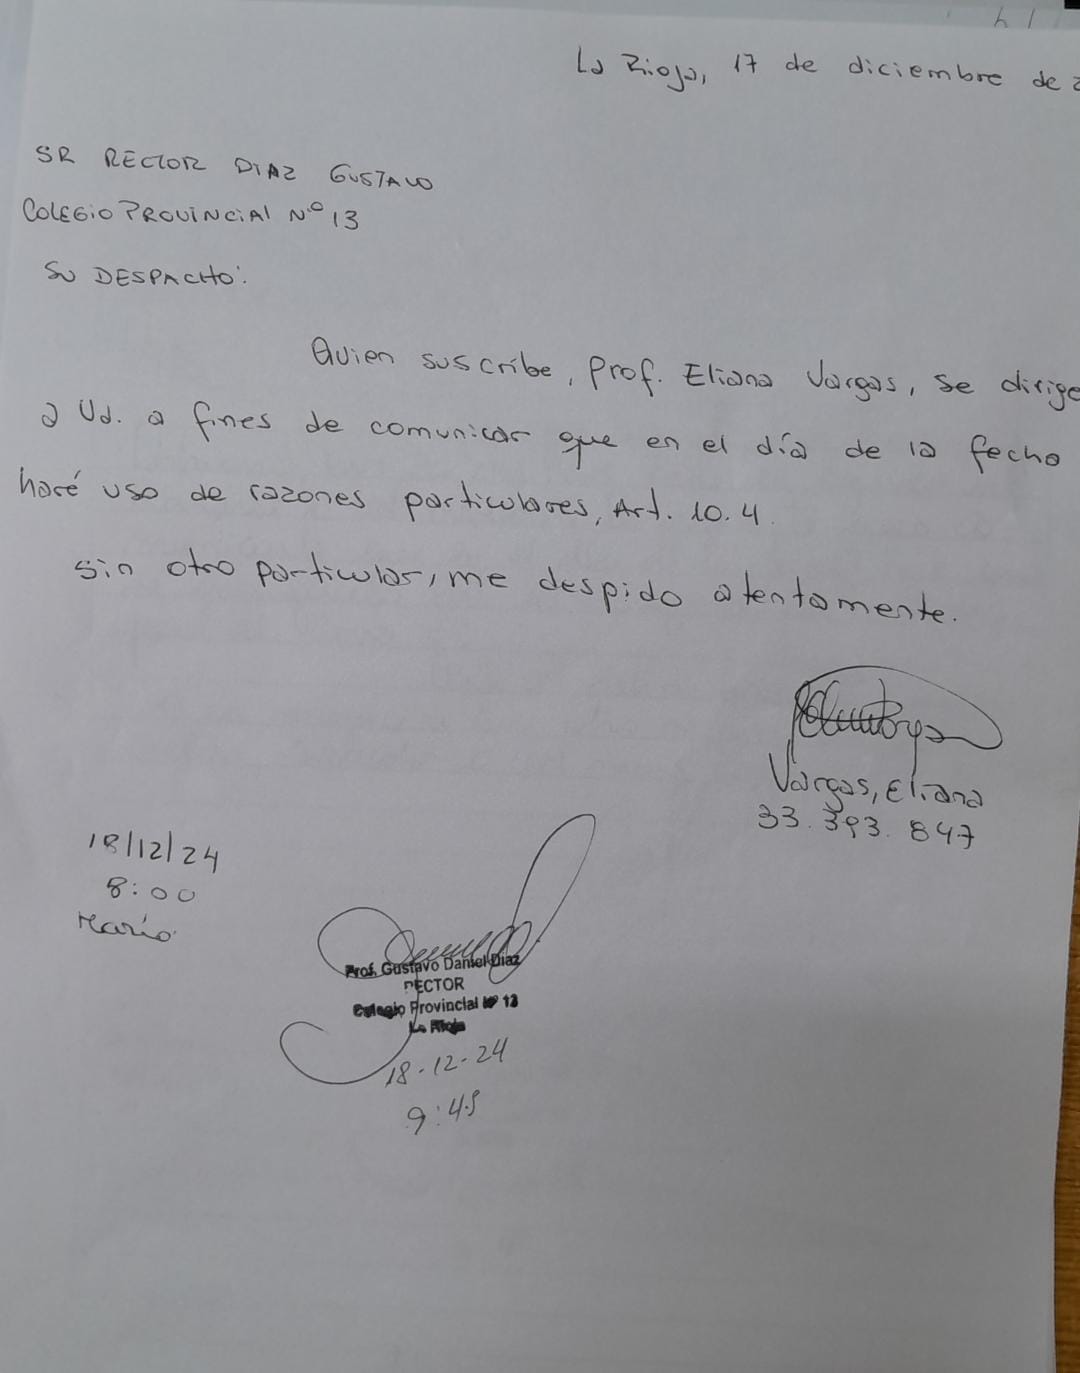 La Rioja, 17 de diciembre de 2
SR RECTOR DIAZ GUSTAVO
COLEGIO PROVINCIAL Nº 13
SU DESPACHO:
Quien suscribe, Prof. Eliana Vargas, se dirige
a Ud. a fines de comunicar que en el día de la fecha
haré uso de razones particulares, Art. 10.4.
sin otro particular, me despido atentamente.
Vargas, Eliana
33.393.847
18/12/24
8:00
Mario
Prof. Gustavo Daniel Diaz
RECTOR
Colegio Provincial Nº 13
La Rioja
18-12-24
9:45